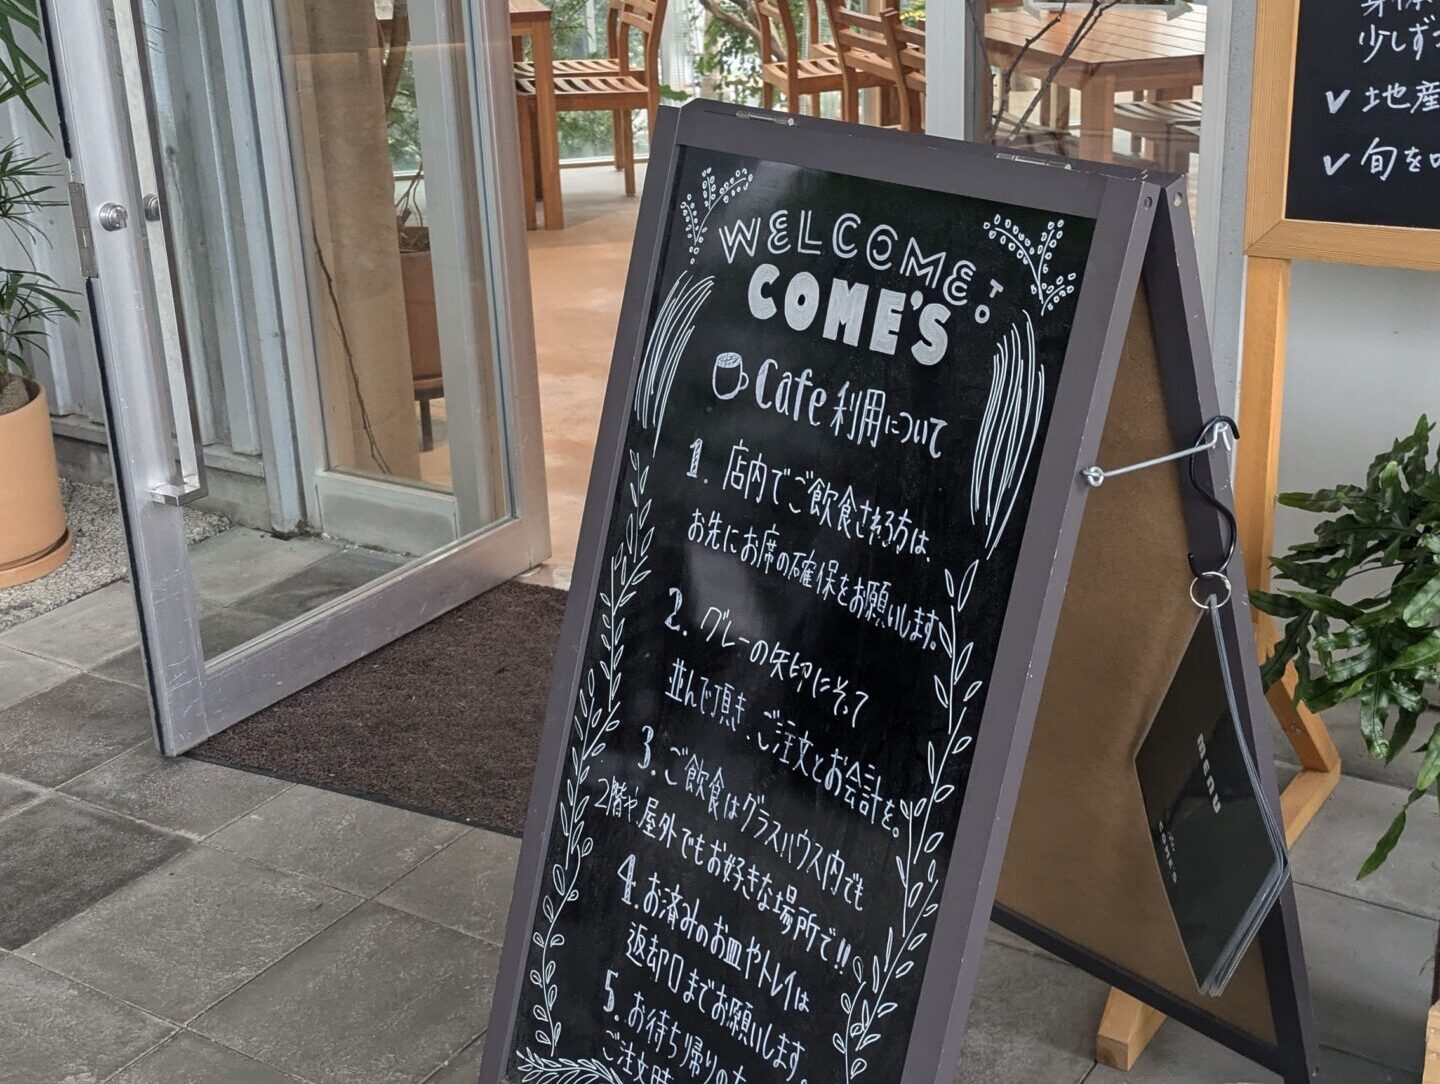 WELCOME TO
COME'S
Cafe 利用について
1. 店内でご飲食される方は、
お先にお席の確保をお願いします。
2. グレーの矢印にそって
並んで頂き、ご注文とお会計を。
3. ご飲食はグラスハウス内でも
2階や、屋外でもお好きな場所で!!
4. お済みのお皿やトレイは
返却口までお願いします。
5. お待ち帰りの
ご注文時
少しず
✓ 地産
✓ 旬を
MENU
COME'S